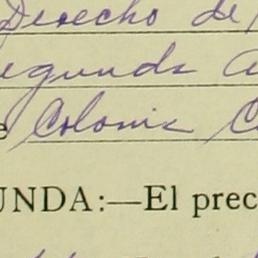 Derecho de
egunda a
e Colonia C
UNDA:—El prec